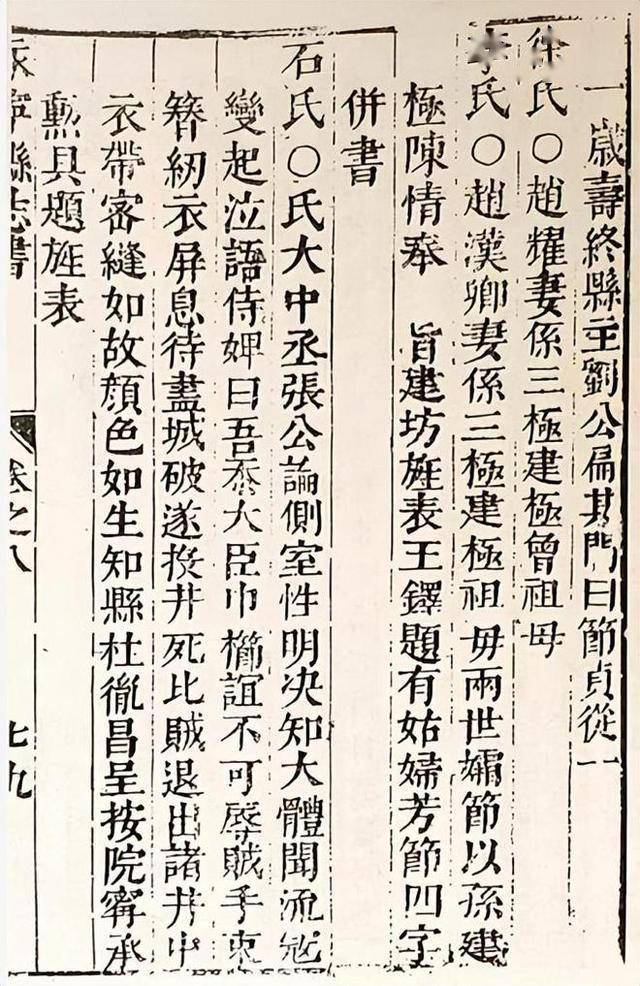 一歲壽終縣主劉公扁其門曰節貞從一
徐氏○趙耀妻係三極建極曾祖母
李氏○趙漢卿妻係三極建極祖母兩世孀節以孫建
極陳情奉　旨建坊旌表王鐸題有姑婦芳節四字
併書
石氏○氏大中丞張公論側室性明決知大體聞流寇
變起泣語侍婢曰吾忝大臣巾櫛誼不可辱賊手束
簪紉衣屏息待盡城破遂投井死比賊退出諸井中
衣帶密縫如故顏色如生知縣杜胤昌呈按院甯承
勲具題旌表
永寧縣志書　卷之八　七九